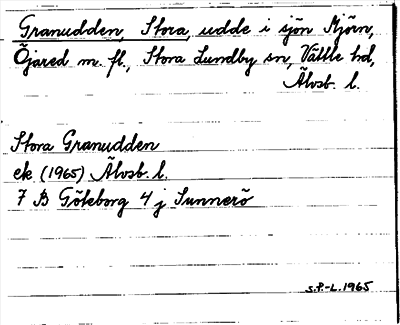 Granudden, Stora, udde i sjön Mjörn,
Öjared m. fl., Stora Lundby sn, Vättle hd,
Älvsb. l.
Stora Granudden
ek (1965) Älvsb. l.
7 B Göteborg 4 j Sunnerö
S.P.-L. 1965